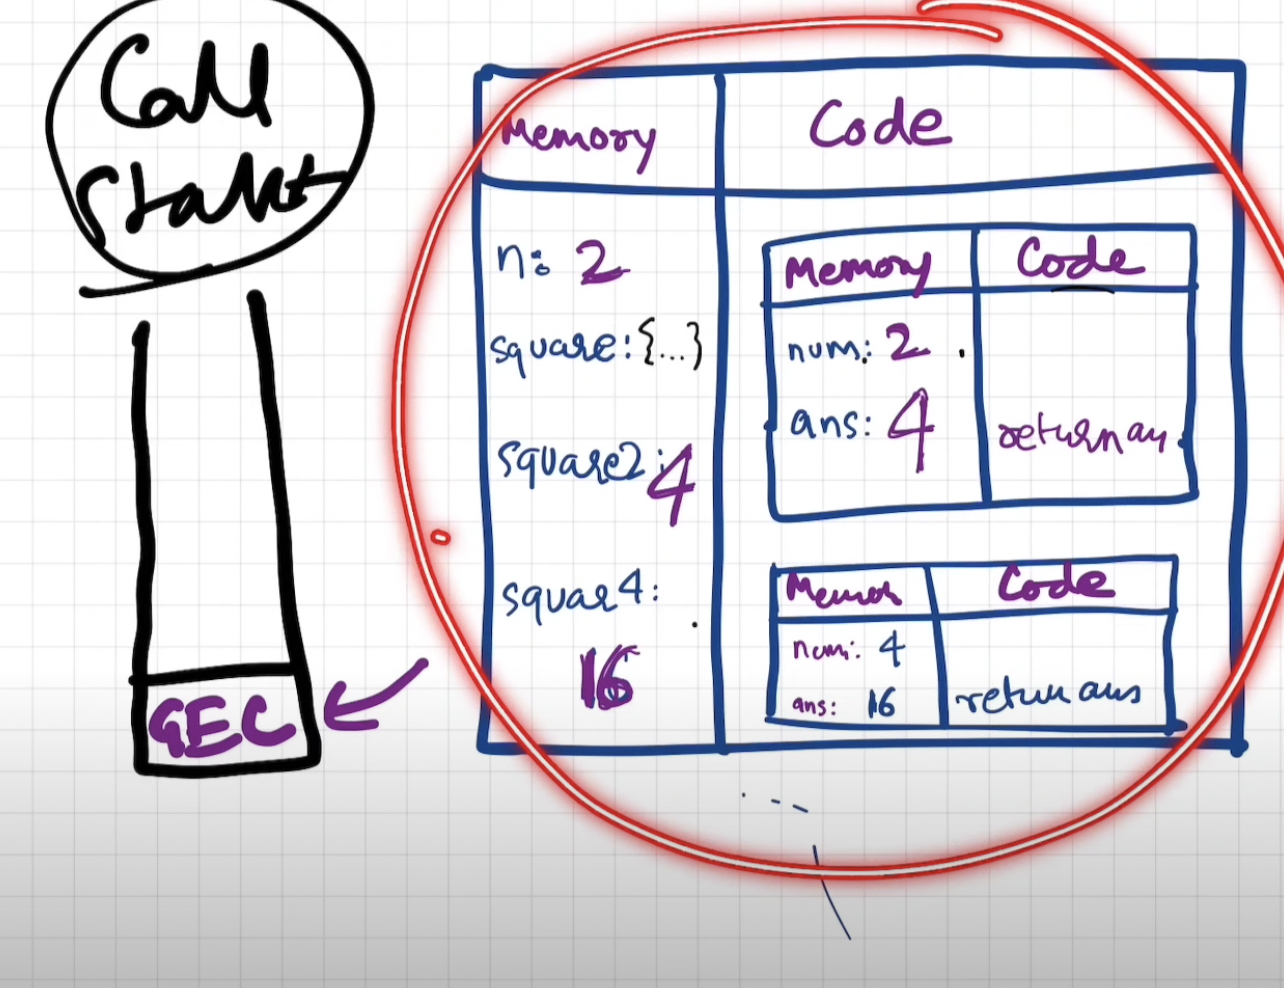 Call
Stack
GEC
Memory
Code
n: 2
square: {...}
square2: 4
squar4:
16
Memory
Code
num: 2
ans: 4
return an
Memor
Code
num: 4
ans: 16
return ans